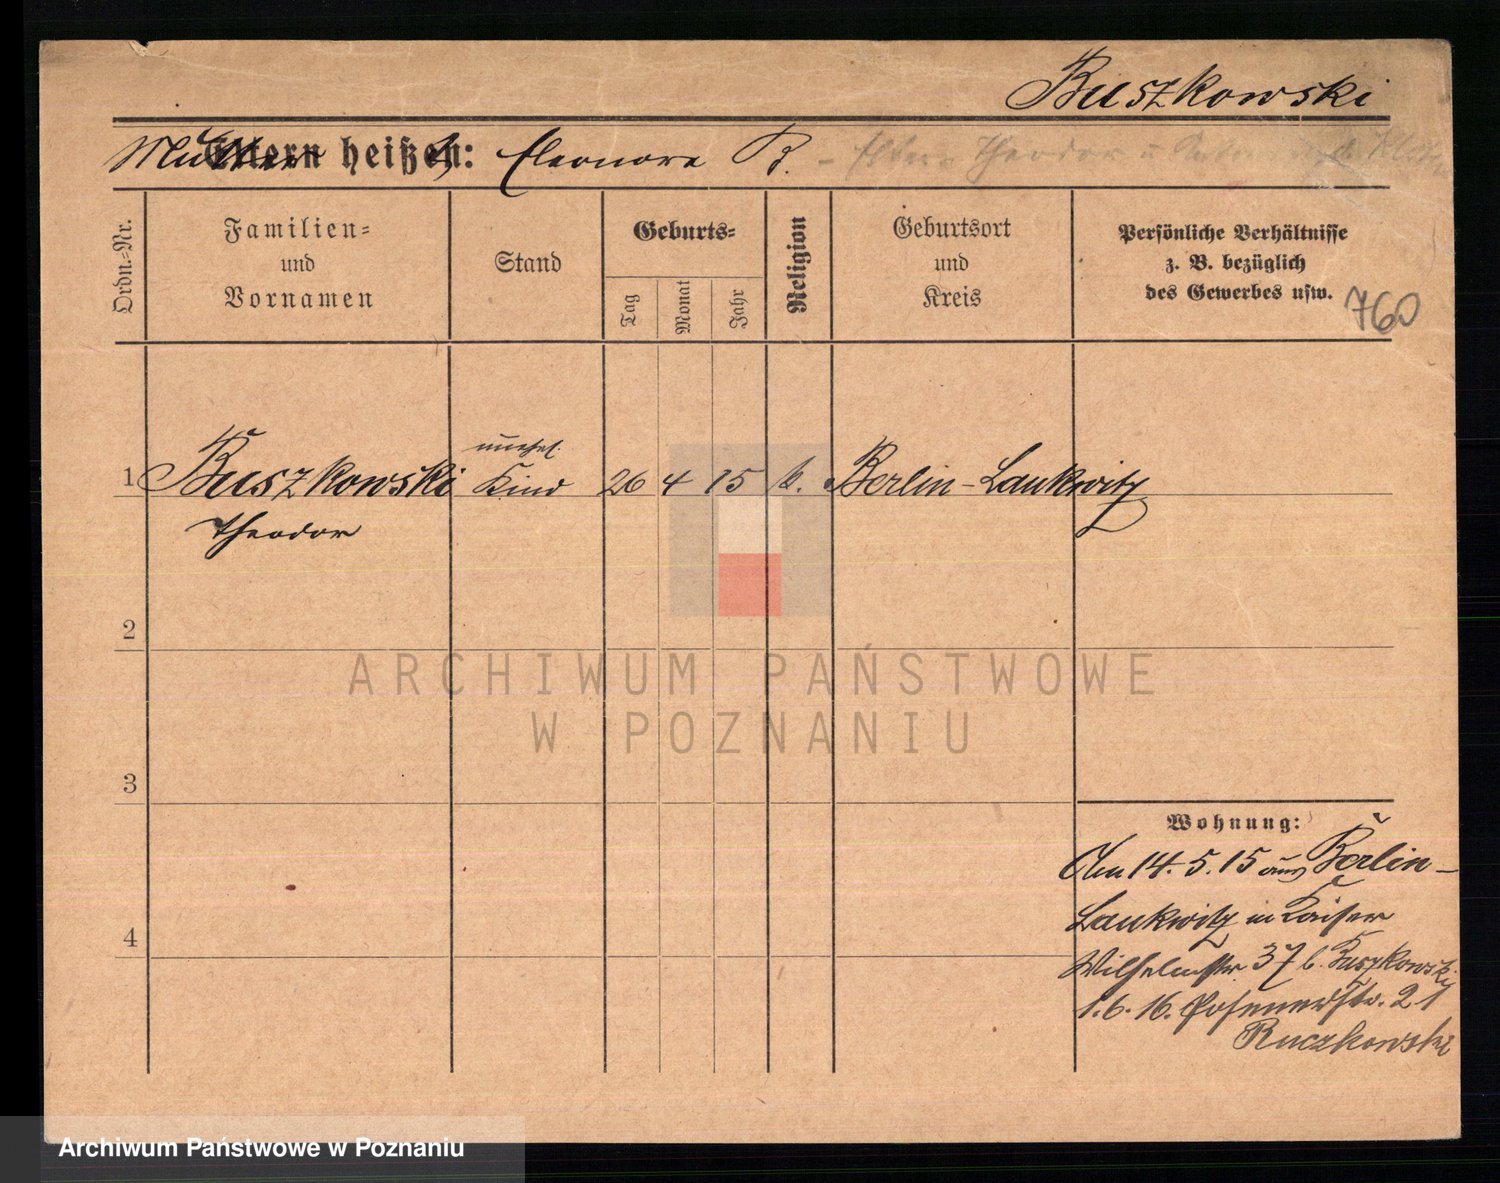 Buszkowski
Mutter heißt: Eleonore B.
Eltern heißen:
Ordn.-Nr.
Familien-
und
Vornamen
Stand
Geburts-
Tag
Monat
Jahr
Religion
Geburtsort
und
Kreis
Persönliche Verhältnisse
z. B. bezüglich
des Gewerbes usw.
760
unehel.
1 Buszkowski Kind 26 4 15 k. Berlin-Lankwitz
Theodor
2
3
4
Wohnung:
Am 14.5.15 aus Berlin-
Lankwitz in Kaiser
Wilhelmstr. 37 b. Buszkowski
1.6.16. Posenerstr. 21
Ruczkowski
ARCHIWUM PAŃSTWOWE
W POZNANIU
Archiwum Państwowe w Poznaniu